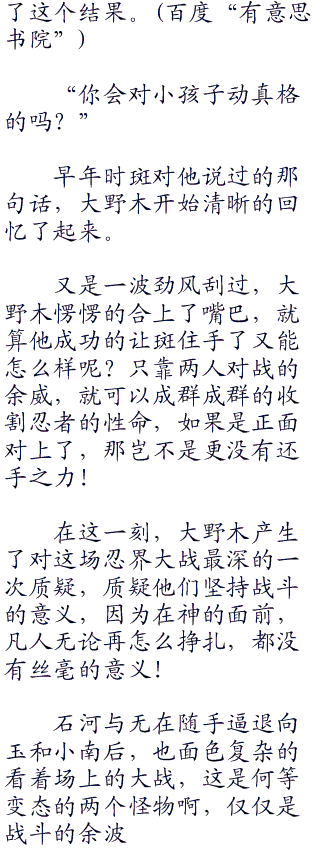 了这个结果。(百度“有意思
书院”)
“你会对小孩子动真格
的吗？”
早年时斑对他说过的那
句话，大野木开始清晰的回
忆了起来。
又是一波劲风刮过，大
野木愣愣的合上了嘴巴，就
算他成功的让斑住手了又能
怎么样呢？只靠两人对战的
余威，就可以成群成群的收
割忍者的性命，如果是正面
对上了，那岂不是更没有还
手之力！
在这一刻，大野木产生
了对这场忍界大战最深的一
次质疑，质疑他们坚持战斗
的意义，因为在神的面前，
凡人无论再怎么挣扎，都没
有丝毫的意义！
石河与无在随手逼退向
玉和小南后，也面色复杂的
看着场上的大战，这是何等
变态的两个怪物啊，仅仅是
战斗的余波